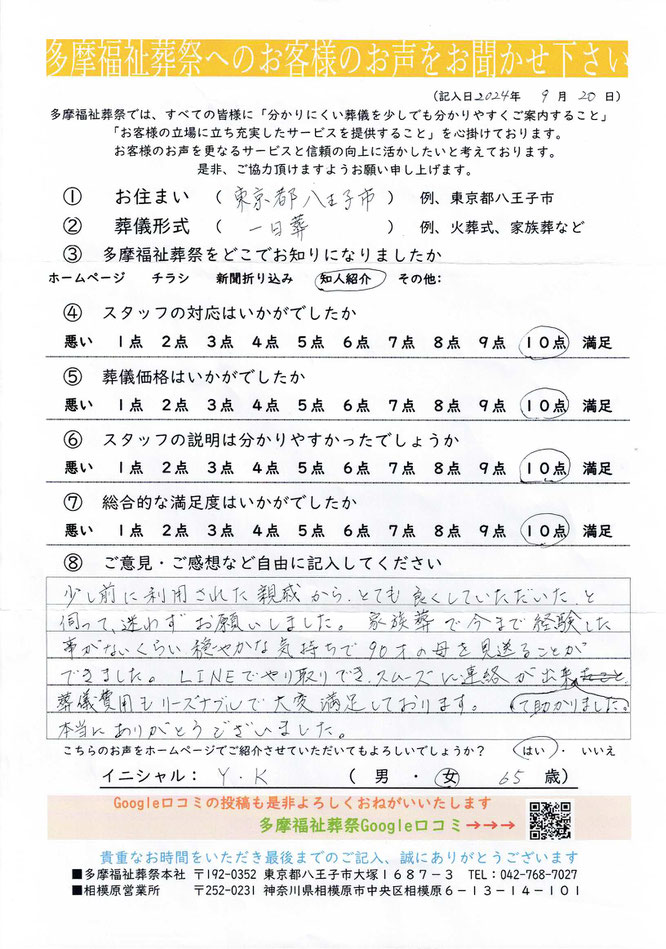 多摩福祉葬祭へのお客様のお声をお聞かせ下さい
(記入日2024年 9月 20日)
多摩福祉葬祭では、すべての皆様に「分かりにくい葬儀を少しでも分かりやすくご案内すること」
「お客様の立場に立ち充実したサービスを提供すること」を心掛けております。
お客様のお声を更なるサービスと信頼の向上に活かしたいと考えております。
是非、ご協力頂けますようお願い申し上げます。
① お住まい (東京都八王子市) 例、東京都八王子市
② 葬儀形式 (一日葬) 例、火葬式、家族葬など
③ 多摩福祉葬祭をどこでお知りになりましたか
ホームページ チラシ 新聞折り込み 知人紹介 その他:
④ スタッフの対応はいかがでしたか
悪い 1点 2点 3点 4点 5点 6点 7点 8点 9点 10点 満足
⑤ 葬儀価格はいかがでしたか
悪い 1点 2点 3点 4点 5点 6点 7点 8点 9点 10点 満足
⑥ スタッフの説明は分かりやすかったでしょうか
悪い 1点 2点 3点 4点 5点 6点 7点 8点 9点 10点 満足
⑦ 総合的な満足度はいかがでしたか
悪い 1点 2点 3点 4点 5点 6点 7点 8点 9点 10点 満足
⑧ ご意見・ご感想など自由に記入してください
少し前に利用された親戚から、とても良くしていただいた、と
伺って、迷わずお願いしました。家族葬で今まで経験した
事がないくらい穏やかな気持ちで90才の母を見送ることが
できました。LINEでやり取りでき、スムーズに連絡が出来
て助かりました。
葬儀費用もリーズナブルで大変満足しております。
本当にありがとうございました。
こちらのお声をホームページでご紹介させていただいてもよろしいでしょうか? はい・ いいえ
イニシャル: Y・K (男・女 65歳)
Google口コミの投稿も是非よろしくおねがいいたします
多摩福祉葬祭Google口コミ→→→
貴重なお時間をいただき最後までのご記入、誠にありがとうございます
■多摩福祉葬祭本社 〒192-0352 東京都八王子市大塚1687-3 TEL:042-768-7027
■相模原営業所 〒252-0231 神奈川県相模原市中央区相模原6-13-14-101